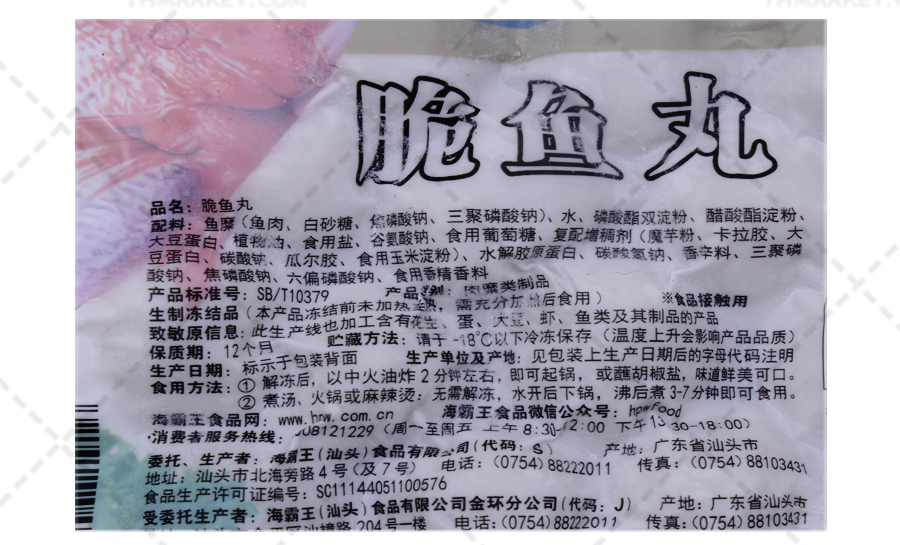 脆鱼丸
品名：脆鱼丸
配料：鱼糜（鱼肉、白砂糖、焦磷酸钠、三聚磷酸钠）、水、磷酸酯双淀粉、醋酸酯淀粉、
大豆蛋白、植物油、食用盐、谷氨酸钠、食用葡萄糖、复配增稠剂（魔芋粉、卡拉胶、大
豆蛋白、碳酸钠、瓜尔胶、食用玉米淀粉）、水解胶原蛋白、碳酸氢钠、香辛料、三聚磷
酸钠、焦磷酸钠、六偏磷酸钠、食用香精香料
产品标准号：SB/T10379 产品 别：肉糜类制品
生制冻结品（本产品冻结前未加热 熟，需充分加热后食用） ※食品接触用
致敏原信息：此生产线也加工含有花生、蛋、大豆、虾、鱼类及其制品的产品
保质期：12个月 贮藏方法：请于-18℃以下冷冻保存（温度上升会影响产品品质）
生产日期：标示于包装背面 生产单位及产地：见包装上生产日期后的字母代码注明
食用方法：① 解冻后，以中火油炸2分钟左右，即可起锅，或蘸胡椒盐，味道鲜美可口。
② 煮汤、火锅或麻辣烫：无需解冻，水开后下锅，沸后煮3-7分钟即可食用。
海霸王食品网：www.hpw.com.cn 海霸王食品微信公众号：hpwFood
消费者服务热线： 08121229（周一至周五 上午8:30- 2:00 下午13 30-18:00）
委托、生产者：海霸王（汕头）食品有限公司（代码：S） 产地：广东省汕头市
地址：汕头市北海旁路4号（及7号） 电话：（0754）88222011 传真：（0754）88103431
食品生产许可证编号：SC11144051100576
受委托生产者：海霸王（汕头）食品有限公司金环分公司（代码：J） 产地：广东省汕头市
204号一楼 电话：（0754）88222011 传真：（0754）88103431